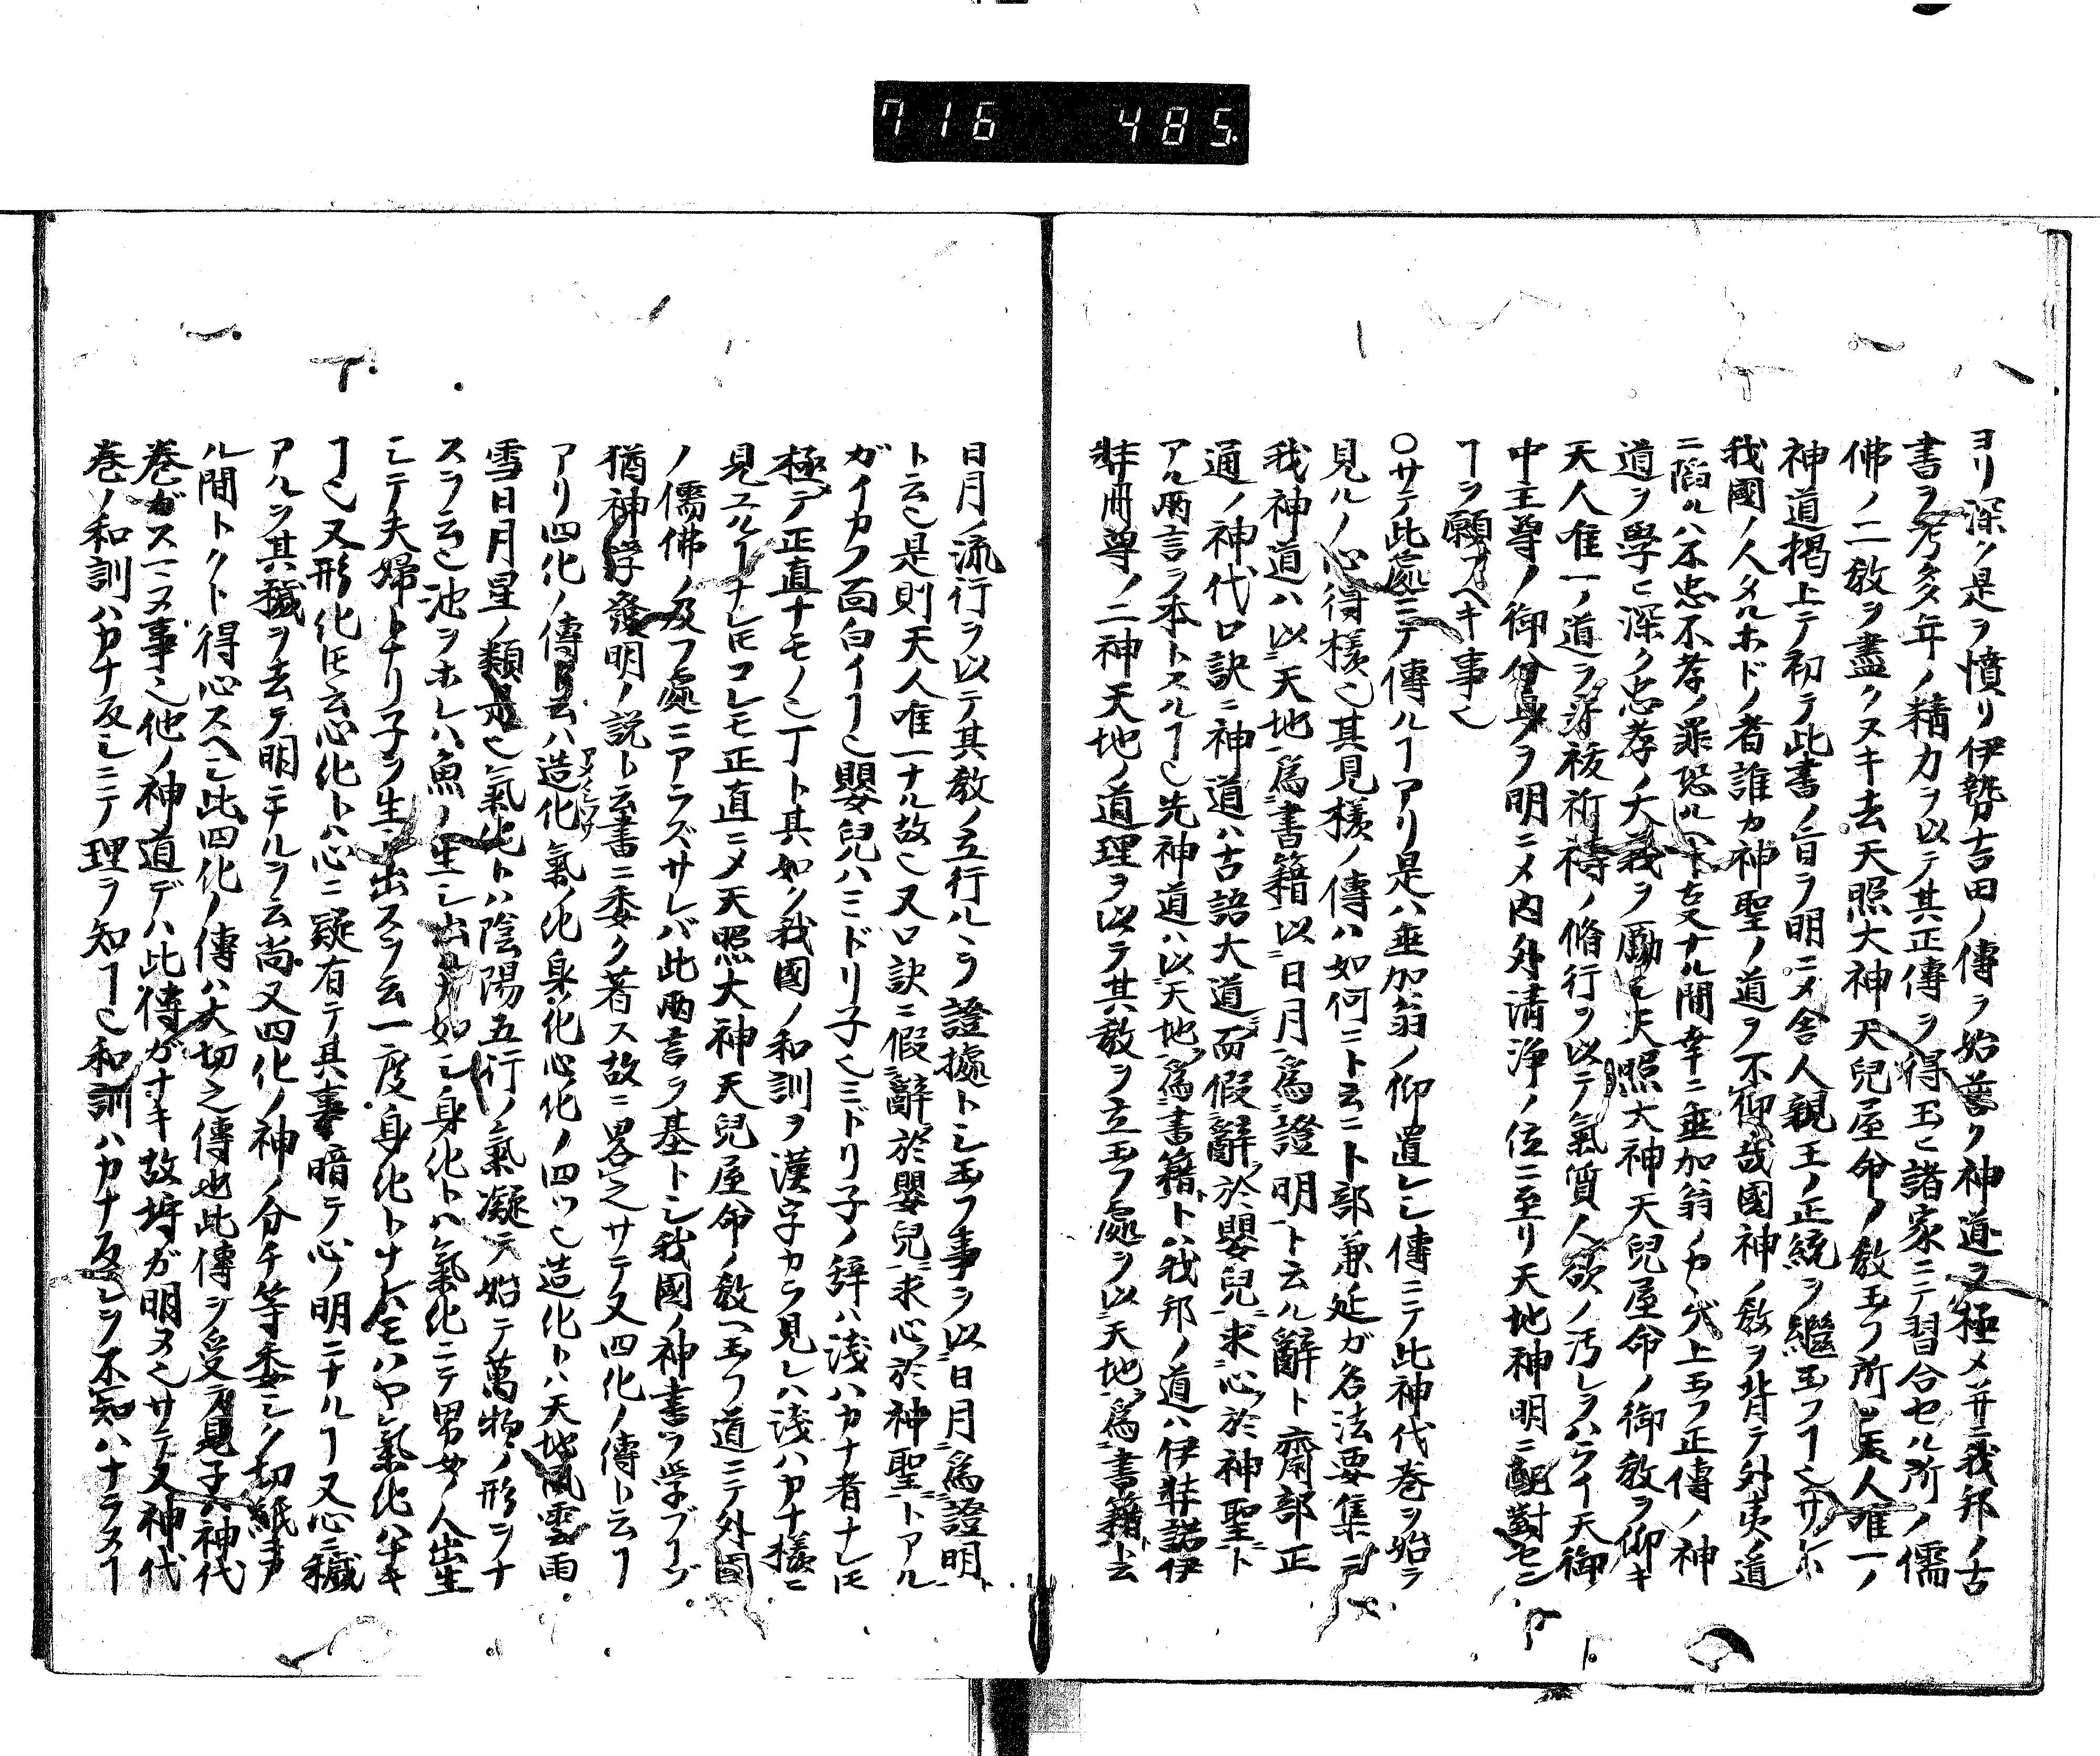 716 485.
ヨリ深ク是ヲ憤リ伊勢吉田ノ傳ヲ始普ク神道ヲ極メ并ニ我邦ノ古
書ヲ考ク久年ノ精力ヲ以テ其正傳ヲ得玉ヒ諸家ニテ習合セル所ノ儒
佛ノ二教ヲ盡クヌキ去天照大神天兒屋命ノ教玉フ所天人唯一ノ
神道掲上テ初テ此書ノ旨ヲ明ニメ舎人親王ノ正統ヲ繼玉フヿ也サ
我國ノ人タルホドノ者誰カ神聖ノ道ヲ不仰哉國神ノ教ヲ背テ外夷ノ道
ニ陷ルハ不忠不孝ノ罪恐ルヘキナル間幸ニ垂加翁ノ上玉フ正傳ノ神
道ヲ學ヒ深ク忠孝ノ大義ヲ勵シ天照大神天兒屋命ノ御教ヲ仰キ
天人唯一ノ道ヲ祓祈祷ノ脩行ヲ以テ氣質人欲ノ汚レヲハライ天御
中主尊ノ御分身ヲ明ニメ内外清浄ノ位ニ至リ天地神明ニ配對セン
ヿヲ願フヘキ事也
〇サテ此處ニテ傳ルヿアリ是ハ垂加翁ノ仰遺レシ傳ニテ此神代巻ヲ始ラ
見ルノ心得様也其見様ノ傳ハ如何ニト云ニト部兼延ガ名法要集ニ
我神道ハ以天地爲書籍以日月爲證明ト云ル辭ト齋部正
通ノ神代口訣ニ神道ハ古語大道而假辭於嬰兒求心於神聖ト
アル兩言ヲ本トスルヿ也先神道ハ以天地爲書籍トハ我邦ノ道ハ伊弉諾伊
弉册尊ノ二神天地ノ道理ヲ以テ其教ヲ立玉フ處ヲ以天地爲書籍ト云
日月ノ流行ヲ以テ其教ノ立行ルヽヲ證據トシ玉フ事ヲ以日月爲證明ト
ト云也是則天人唯一ナル故也又口訣ニ假辭於嬰兒求心於神聖トアル
ガイカフ面白イヿ也嬰兒ハミドリ子也ミドリ子ノ辞ハ淺ハカナ者ナレ𪜈
極テ正直ナモノ也丁ト其如ク我國ノ和訓ヲ漢字カラ見レハ淺ハカナ様ニ
見ユルヿナレ𪜈コレモ正直ニメ天照大神天兒屋命ノ教ヘ玉フ道ニテ外國
ノ儒佛ノ及フ處ニアラズサレバ此兩言ヲ基トシ我國ノ神書ヲ学ブヿヅ
猶神學發明ノ説ト云書ニ委ク著ス故ニ畧之サテ又四化ノ傳ト云ヿ
アリ四化ノ傳ト云ハ造化氣化身化心化ノ四ツ也造化トハ天地風雲雨
雪日月星ノ類是也氣化トハ陰陽五行ノ氣凝テ始テ萬物ノ形ヲナ
スヲ云也池ヲホレハ魚ノ生シ出ルカ如シ身化トハ氣化ニテ男女ノ人出生
シテ夫婦トナリ子ヲ生ミ出スヲ云一度身化トナレハモハヤ氣化ハナキ
ヿ也又形化𪜈云心化トハ心ニ疑有テ其事暗テ心ノ明ニナルヿ又心ニ穢
アルヲ其穢ヲ去テ明ニナルヲ云尚又四化ノ神ノ分チ等委シク切紙ニア
ル間トクト得心スヘシ此四化ノ傳ハ大切之傳也此傳ヲ受テ見子ハ神代
巻ガスマヌ事也他ノ神道デハ此傳ガナキ故埒ガ明ヌ也サテ又神代
巻ノ和訓ハカナ反シニテ理ヲ知ヿ也和訓ハカナ反シヲ不知ハナラヌヿ